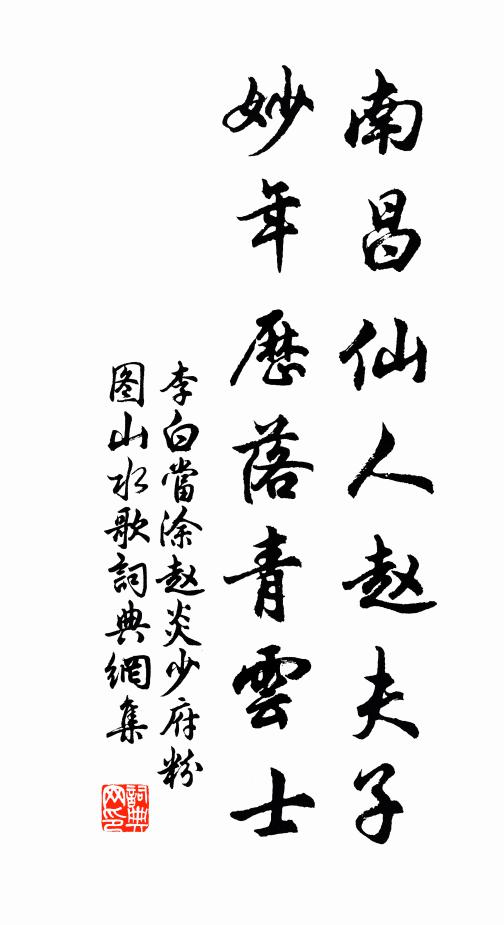 南昌仙人赵夫子
妙年歷落青雲士
李白當涂赵炎少府粉
图山水歌詞典網集